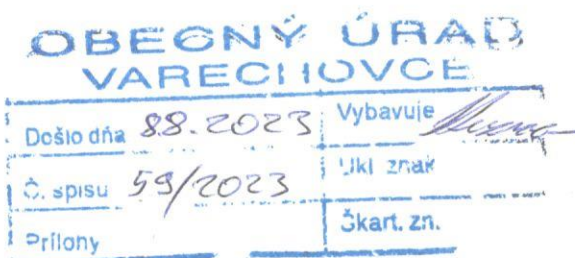 OBECNÝ ÚRAD
VARECHOVCE
Došlo dňa 8.8.2023 Vybavuje
Č. spisu 59/2023 Ukl. znak
Prílohy Škart. zn.